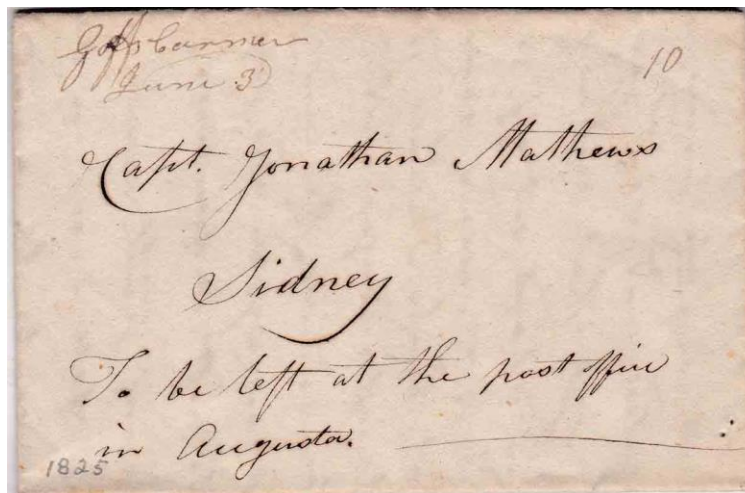 Goffs Corner
June 3
10
Capt. Jonathan Mathews
Sidney
To be left at the post office
in Augusta.
1825